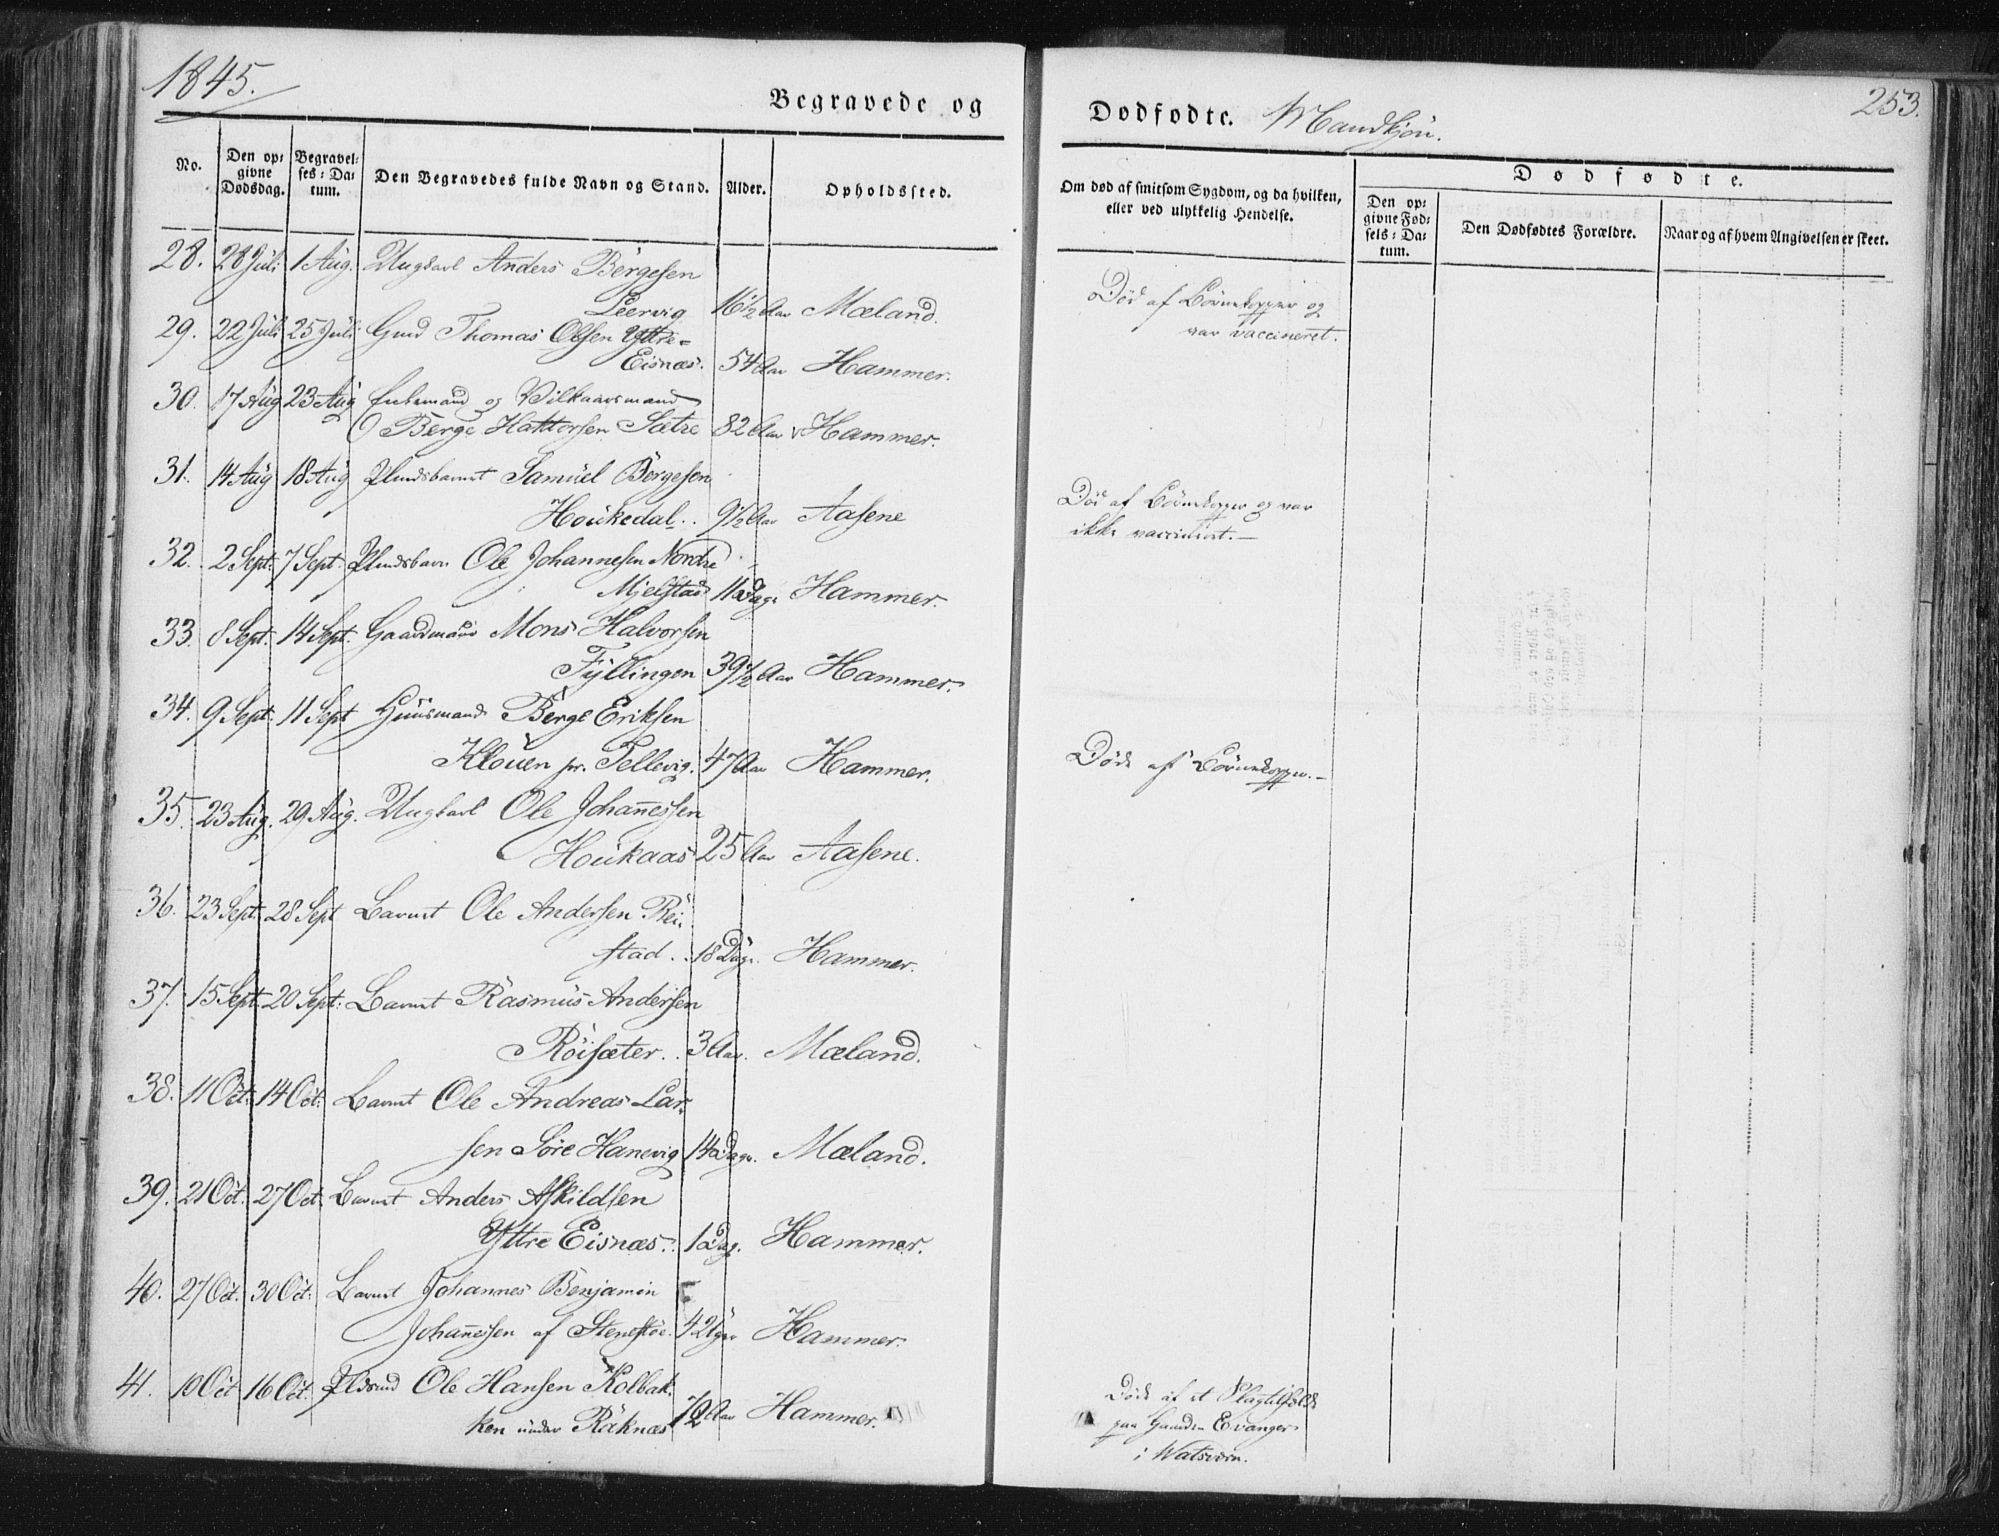 1845.
Begravede og
Dødfødte. Mandkjøn.
253.
No.
Den op: givne Dødsdag.
Begravel: ses: Da: tum.
Den Begravedes fulde Navn og Stand.
Alder.
Opholdssted.
Om død af smitsom Sygdom, og da hvilken,
eller ved ulykkelig Hendelse.
Dødfødte.
Den op: givne Fød: sels: Da: tum.
Den Dødfødtes Forældre.
Naar og af hvem Angivelsen er skeet.
28. 28 Juli 1 Aug. Ungkarl Anders Børgesen
Leervig 16½ Aar Mæland. Død af Børnekopper og
var vaccineret.
29. 22 Juli 25 Juli Gmd Thomas Olsen Yttre-
Eisnæs. 54 Aar Hammer.
30. 17 Aug 23 Aug Enkemand og Vilkaarsmand
Børge Haktorsen Sætre 82 Aar Hammer.
31. 14 Aug 18 Aug Samuel Børgesen
Houkedal. 9½ Aar Aasene Død af Børnekopper og var
ikke vaccineret.
32. 2 Sept. 7 Sept. Ole Johannesen Nordre
Mjelstad 11 Dage Hammer.
33. 8 Sept. 14 Sept. Gaardmand Mons Halvorsen
Fyllingen 39½ Aar Hammer.
34. 9 Sept. 11 Sept Huusmand Børge Eriksen
Klouen pr. Tellevig. 47 Aar Hammer. Døde af Børnekopper.
35. 23 Aug. 29 Aug. Ungkarl Ole Johannessen
Houkaas 25 Aar Aasene.
36. 23 Sept. 28 Sept Barnet Ole Andersen Rei:
stad. 18 Dage. Hammer.
37. 15 Sept. 20 Sept: Barnet Rasmus Andersen
Røisæter. 3 Aar. Mæland.
38. 11 Oct: 14 Oct: Barnet Ole Andreas Lar:
sen Søre Hanevig 14 Dage. Mæland.
39. 21 Oct. 27 Oct. Barnet Anders Askildsen
Yttre Eisnæs. 1 Dag. Hammer.
40. 27 Oct. 30 Oct. Barnet Johannes Benjamin
Johannessen af Stenestøe. 4 Uger Hammer.
41. 10 Oct 16 Oct. Ole Hansen Kolbak:
ken under Røknæs 72 Aar Hammer. Døde af et Slagtilfælde
paa Gaarden Evanger
i Watsvøen.